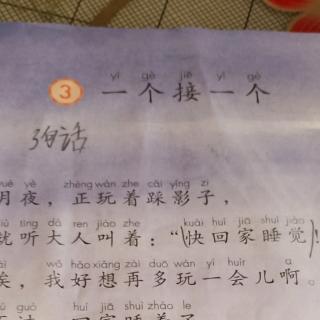 yí gè jiē yí gè
3 一个接一个
3句话
yuè yè, zhèng wán zhe cǎi yǐng zi
月夜，正玩着踩影子，
jiù tīng dà ren jiào zhe kuài huí jiā shuì jiào
就听大人叫着：“(快回家睡觉)！
āi wǒ hǎo xiǎng zài duō wán yí huìr a
唉，我好想再多玩一会儿啊。
guò huí jiā shuì zháo le